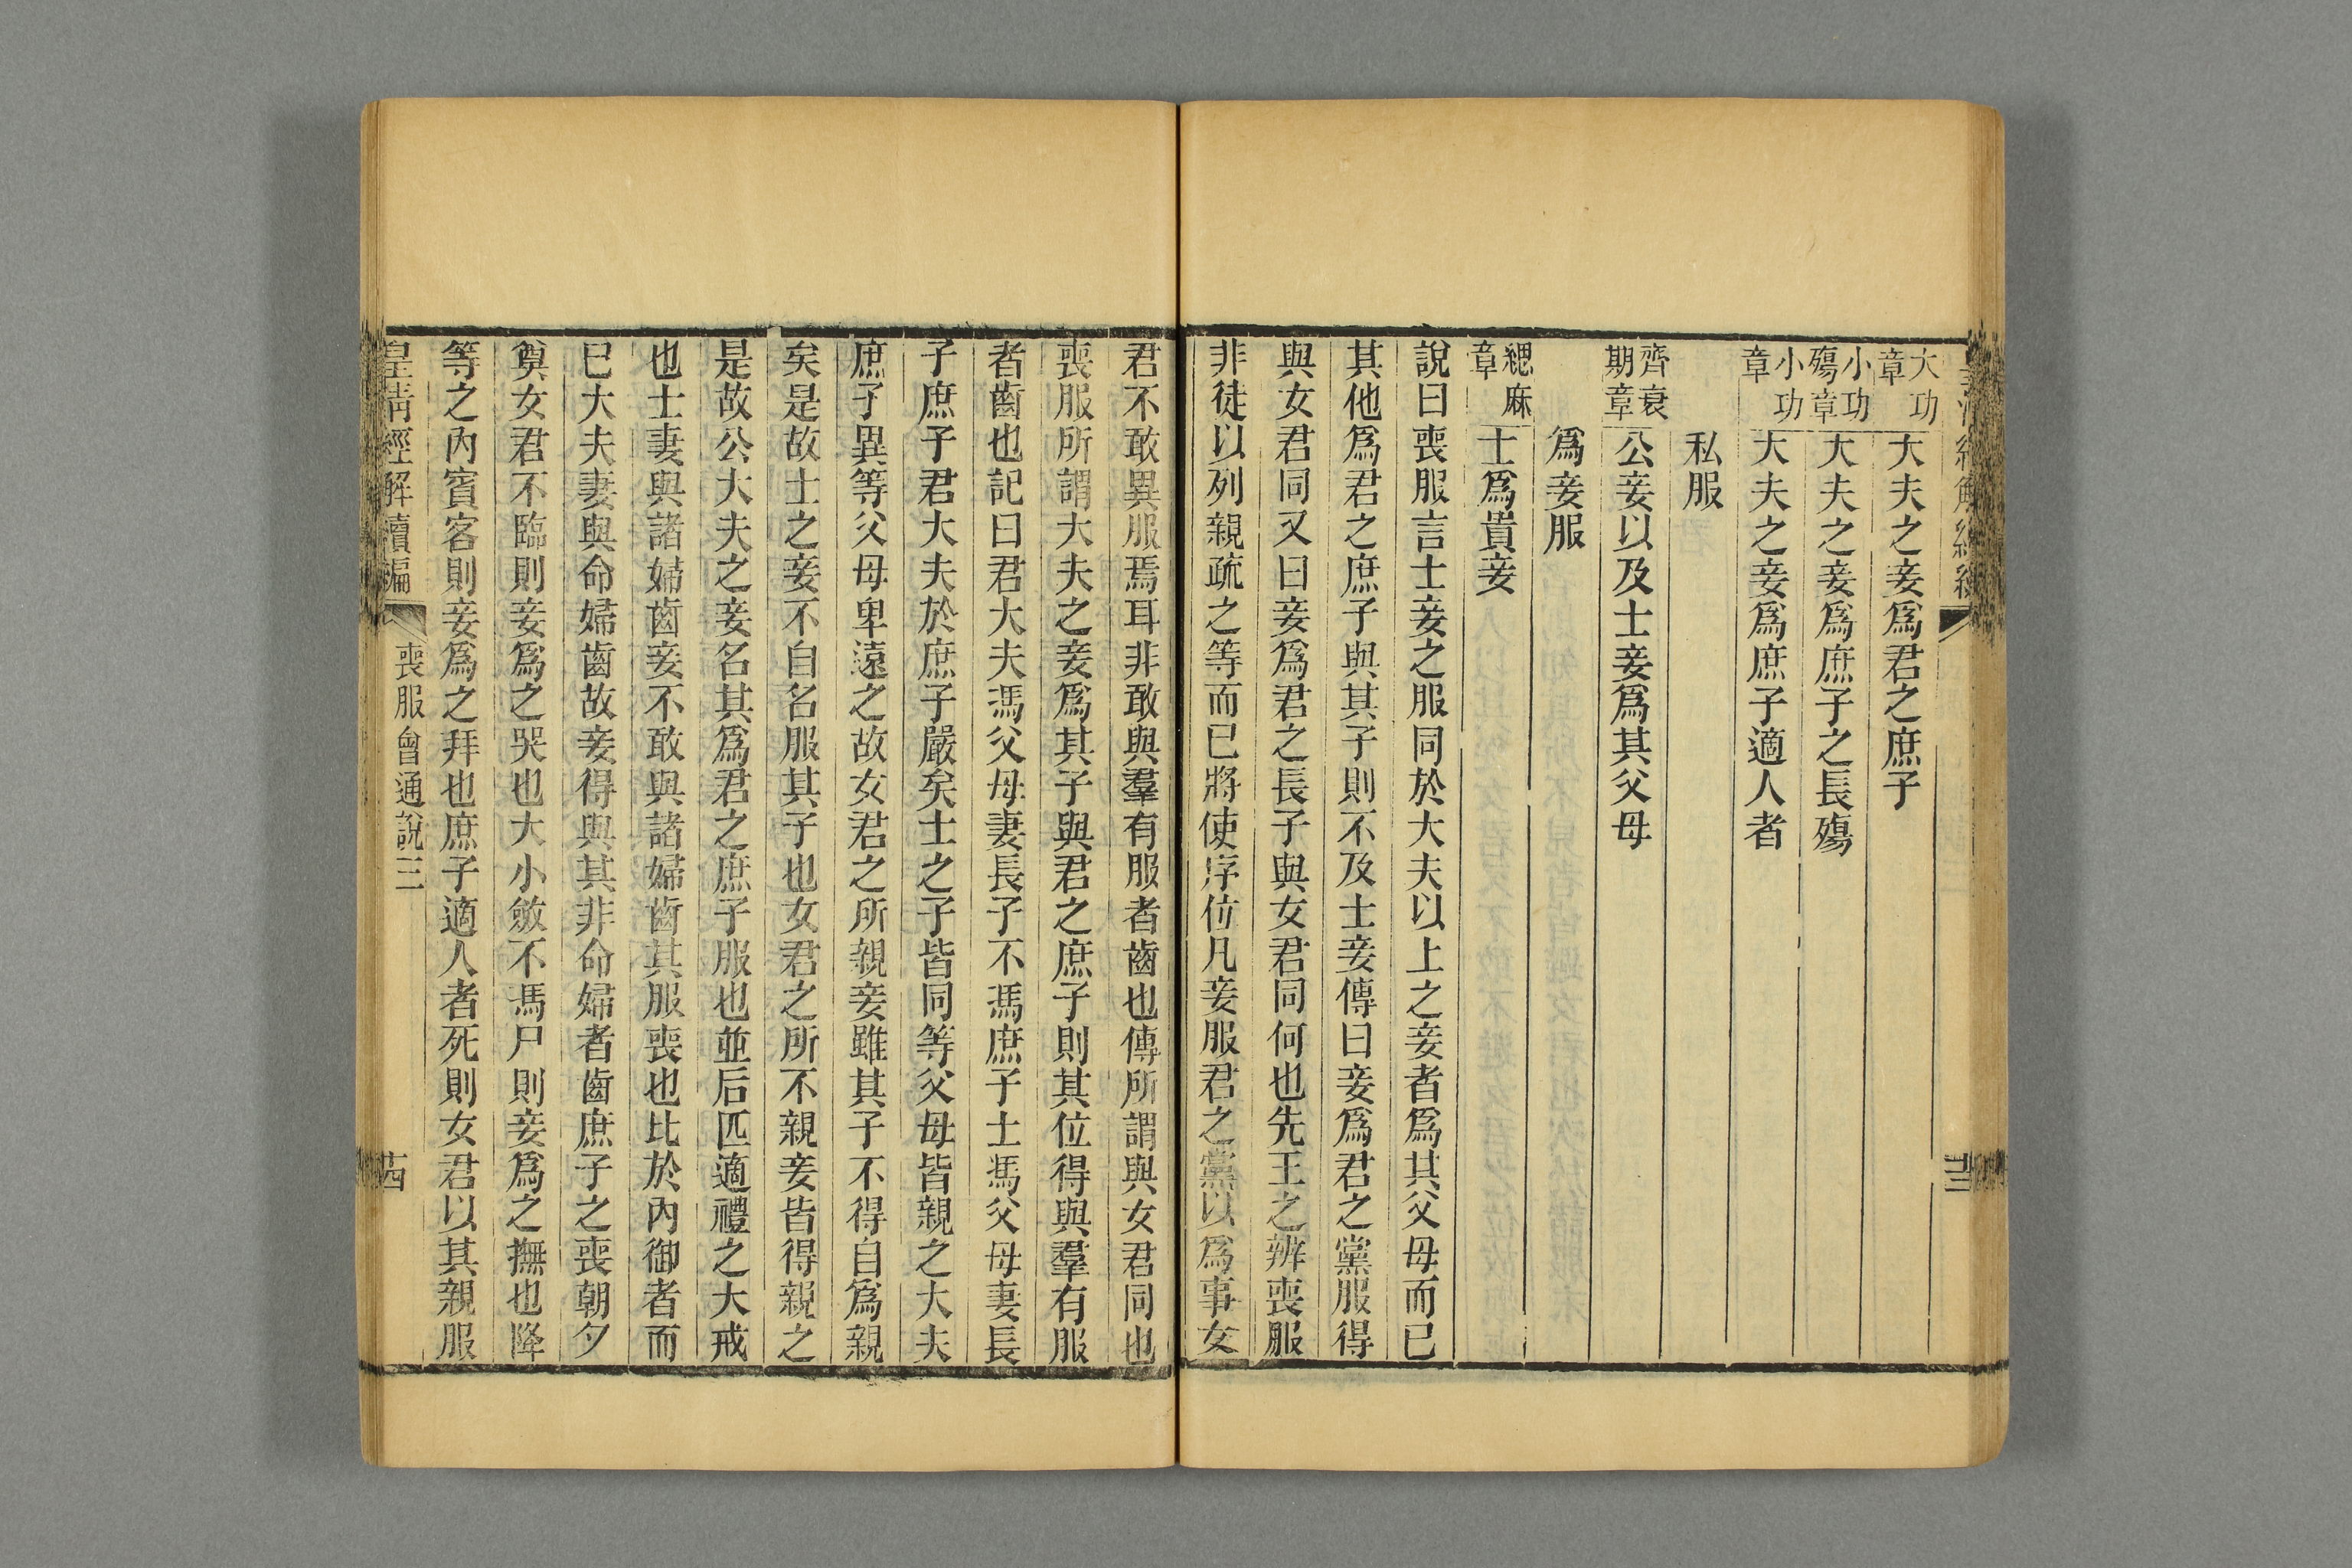 大功章 大夫之妾爲君之庶子
小功殤章 大夫之妾爲庶子之長殤
小功章 大夫之妾爲庶子適人者
私服
齊衰期章 公妾以及士妾爲其父母
爲妾服
緦麻章 士爲貴妾
說曰喪服言士妾之服同於大夫以上之妾者爲其父母而已
其他爲君之庶子與其子則不及士妾傳曰妾爲君之黨服得
與女君同又曰妾爲君之長子與女君同何也先王之辨喪服
非徒以列親疏之等而已將使序位凡妾服君之黨以爲事女
君不敢異服焉耳非敢與羣有服者齒也傳所謂與女君同也
喪服所謂大夫之妾爲其子與君之庶子則其位得與羣有服
者齒也記曰君大夫馮父母妻長子不馮庶子士馮父母妻長
子庶子君大夫於庶子嚴矣士之子皆同等父母皆親之大夫
庶子異等父母卑遠之故女君之所親妾雖其子不得自爲親
矣是故士之妾不自名服其子也女君之所不親妾皆得親之
是故公大夫之妾名其爲君之庶子服也並后匹適禮之大戒
也士妻與諸婦齒妾不敢與諸婦齒其服喪也比於內御者而
已大夫妻與命婦齒故妾得與其非命婦者齒庶子之喪朝夕
奠女君不臨則妾爲之哭也大小斂不馮尸則妾爲之撫也降
等之內賓客則妾爲之拜也庶子適人者死則女君以其親服
皇清經解續編 喪服會通說三 古